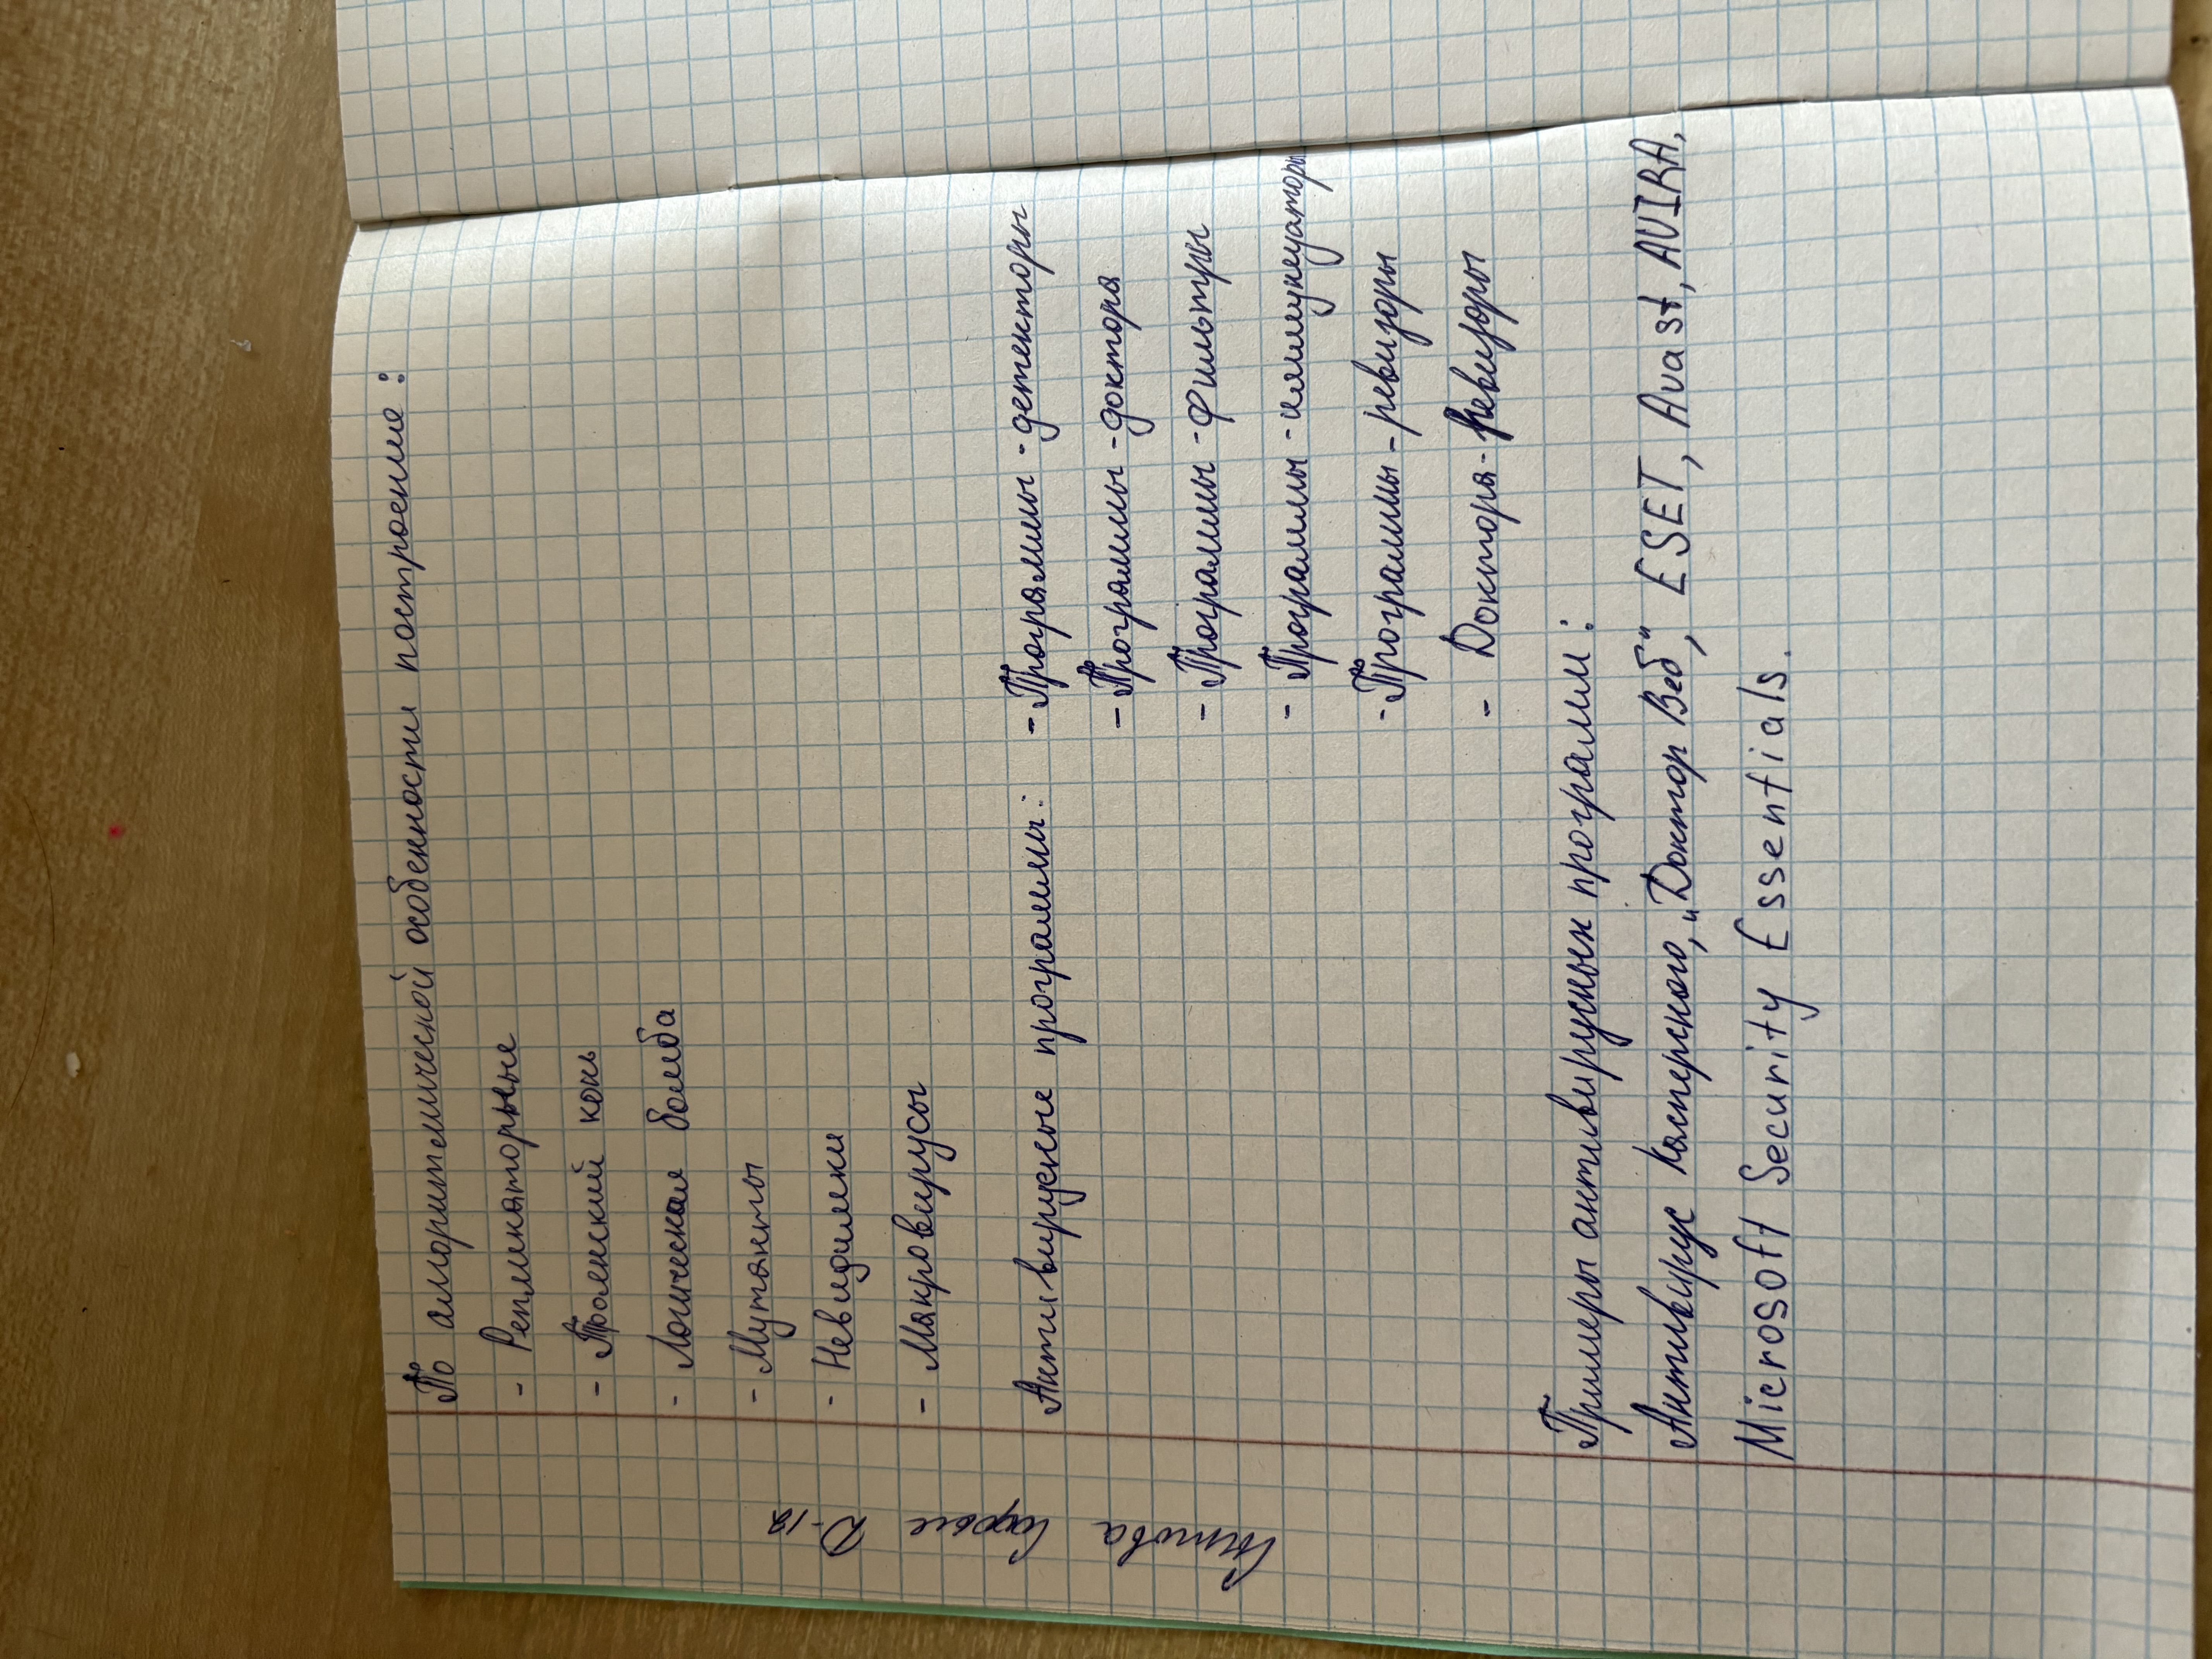 По алгоритмической особенности построение:
- Репликаторные
- Троянский конь
- Логическая бомба
- Мутанты
- Невидимки
- Макровирусы
Антивирусные программы: - Программы-детекторы
- Программы-доктора
- Программы-фильтры
- Программы-иммунизаторы
- Программы-ревизоры
- Доктора-ревизоры
Примеры антивирусных программ:
Антивирус Касперского, „Доктор Веб", ESET, Avast, AVIRA,
Microsoft Security Essentials.